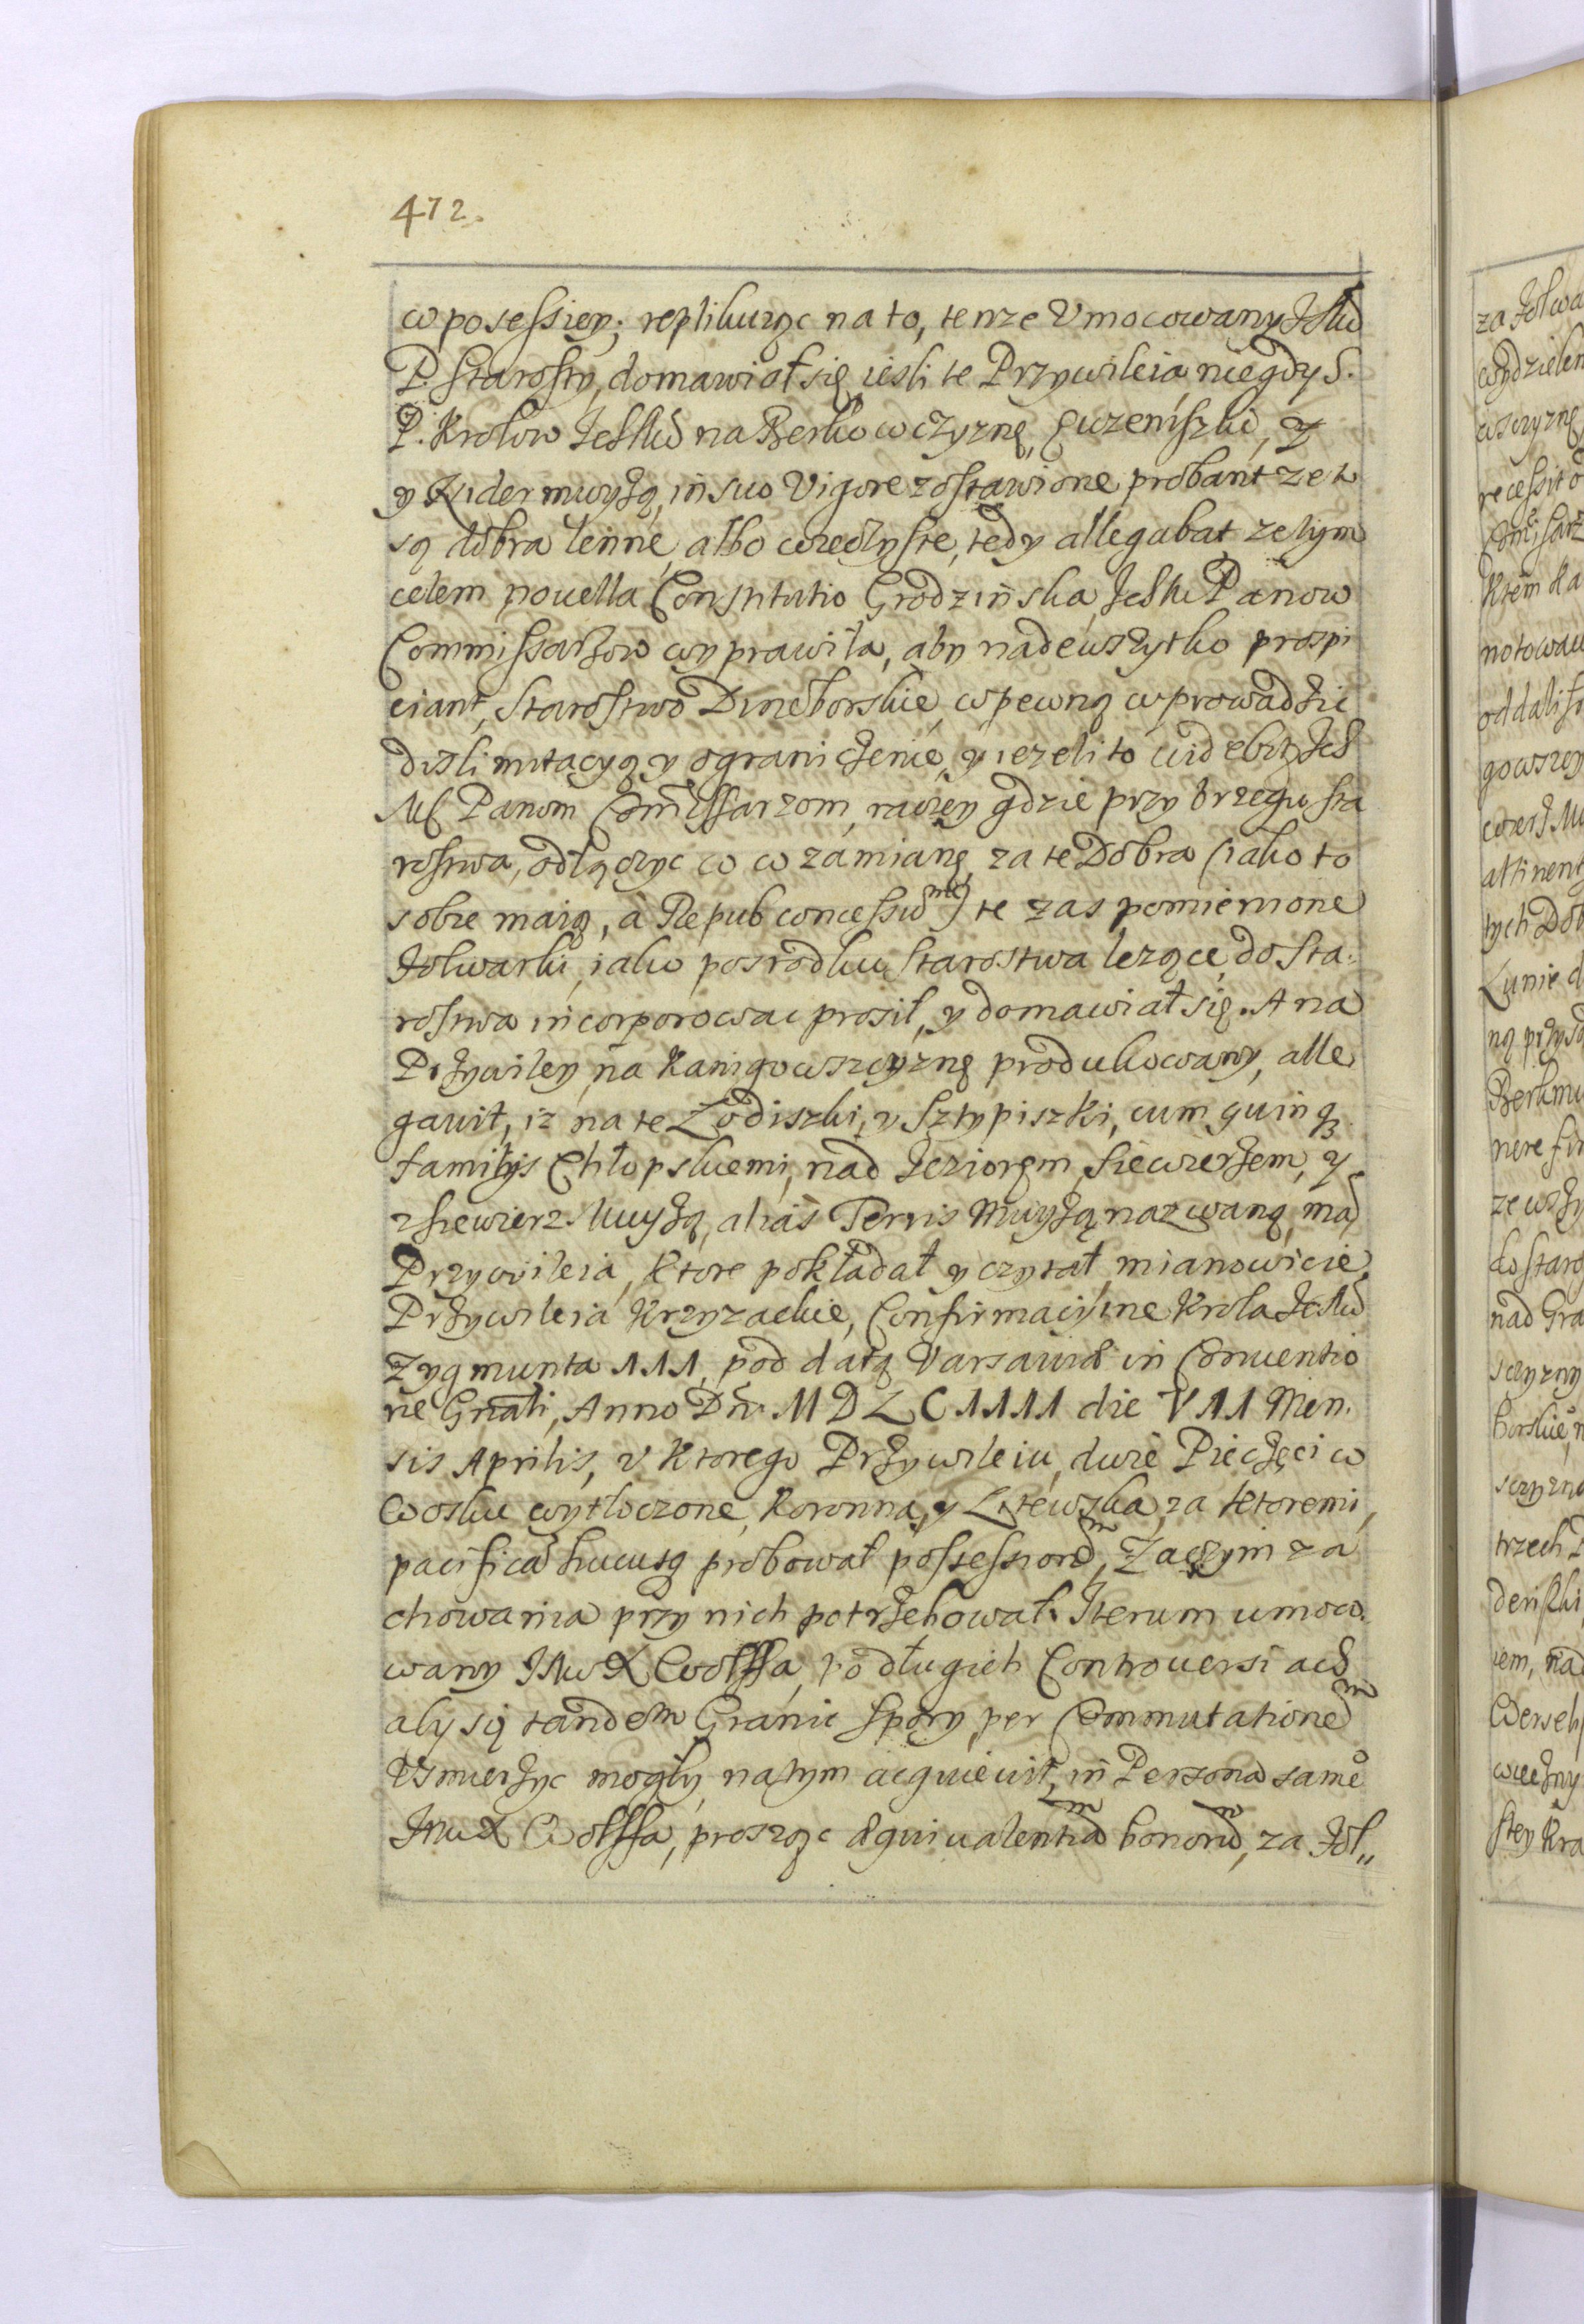 472.
w posessiey; replikuiąc na to, tenze Vmocowany JeMci
P. Starosty, domawiał się iesli te Przywileia niegdy S.
P. Krolow JehMci na Berkowczyznę, Guzeniszki, y
y Kidermuyżą, in suo Vigore zostawione probant ze to
są dobra lenne, albo wieczyste, tedy allegabat ze tym
celem nouella Constitutio Grodzinska, IchM Panow
Commissarżow wyprawiła, aby nadewszytko prospi
ciant, Starostwo Dineborskie, w pewną wprowadzic
dislimitacyą y ograniczenie, y iezeli to videbit Ich
Mc Panom Com̃issarzom, raczey gdzie przy brzegu sta
rostwa, odłączyc co w zamianę, za te Dobra (iako to
sobie maią, à Repub concessum) te zas pomienione
Folwarki, iako posrodku Starostwa lezące, do Sta:
rostwa incorporowac prosił, y domawiał się. A na
Przywiley na Kanigowszczyznę produkowany, alle
gauit, iz na te Lodiszki, y Sztypiszki, cum quinq
familijs Chłopskiemi, nad Jeziorem Siewierżem, y
z Siewierz Muyżą, alias Ternis Muyżą nazwaną, ma
Przywileia, Ktore pokładał y czytał, mianowicie
Przywileia Krzyzackie, Confirmacyine Krola JeMci
Zygmunta 111, pod datą Varsauiæ in Conuentio
ne Gnãli, Anno Dñi M D L C 1111 die V11 Men.
sis Aprilis, v Ktorego Przywileiu, dwie Pieczęci w
Wosku wytłoczone, Koronna, y Litewska, za Ktoremi,
pacifica hucusq probował possessionem, Zaczym za
chowania przy nich potrzebował. Iterum umoco.
wany JMci X Wolffa, po długich Controuersiach
aby się tandem Granic spory, per Commutationem
Vsmierzyc mogły, na tym acquieuit, in Persona same
JMci X Wolffa, prosząc æquiualentiam bonorum, za Fol,,